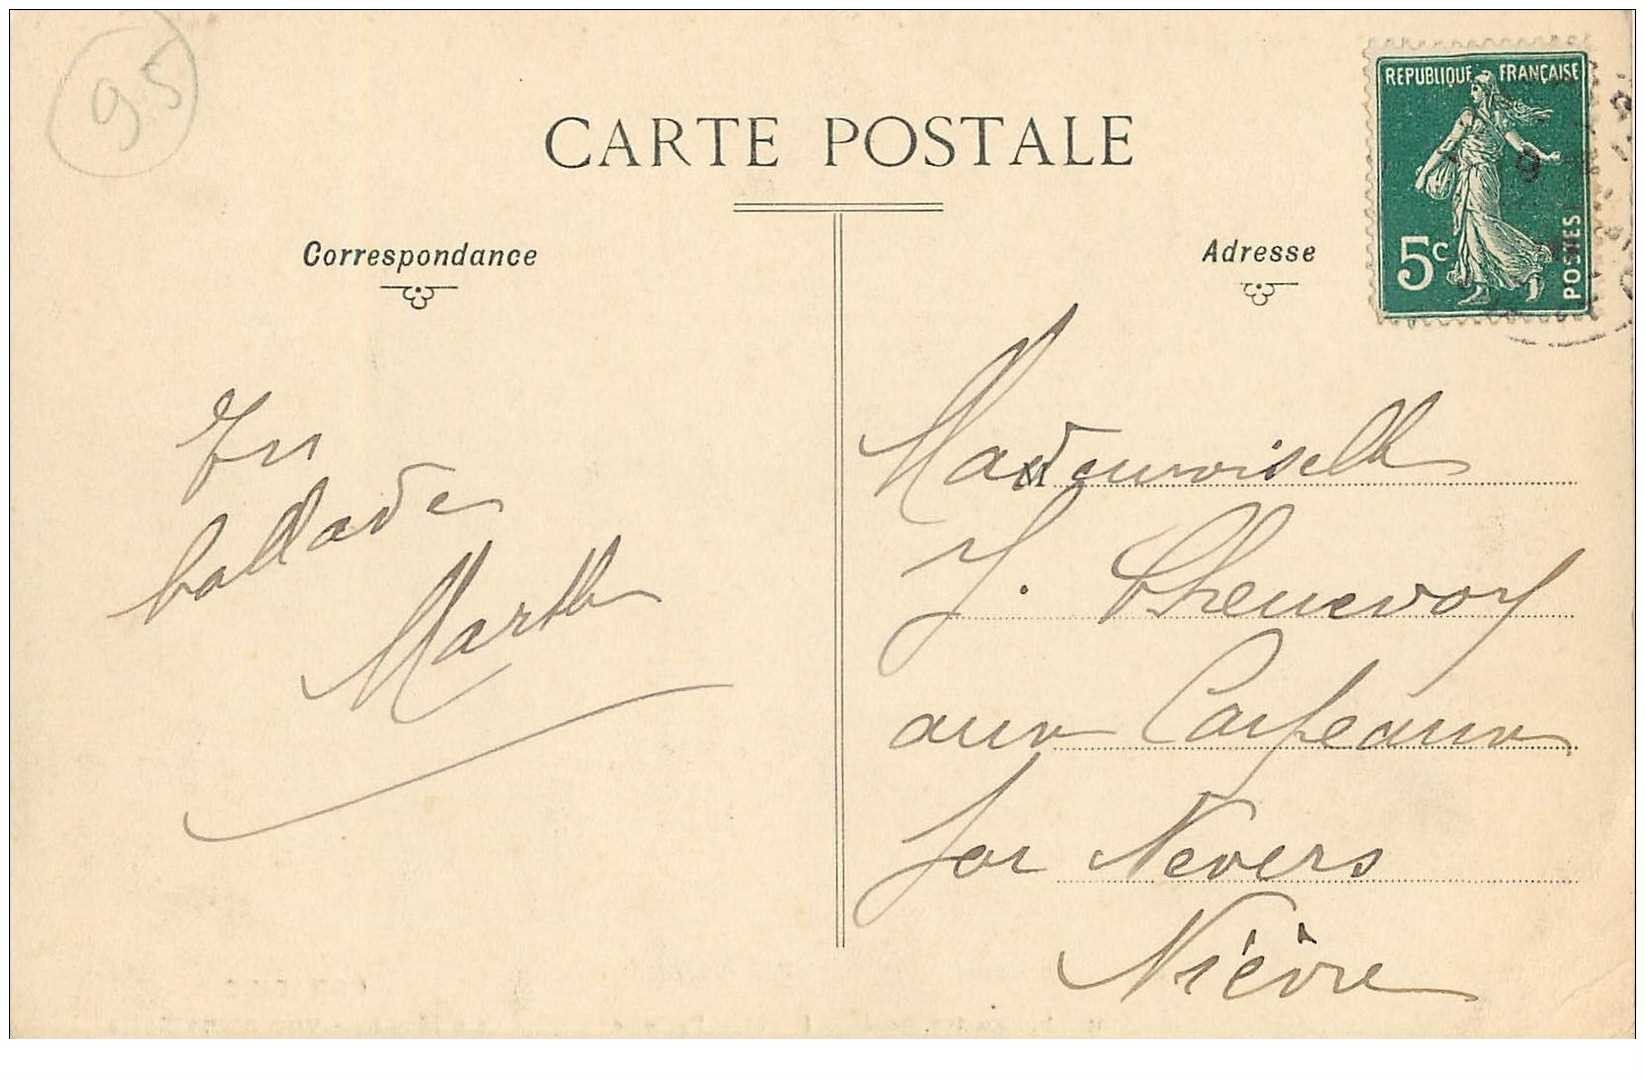 95
CARTE POSTALE
Correspondance
Adresse
REPUBLIQUE FRANÇAISE
5c
POSTES
En
ballade
Marthe
Mademoiselle
J. Chenevoy
aux Carpeaux
par Nevers
Nièvre